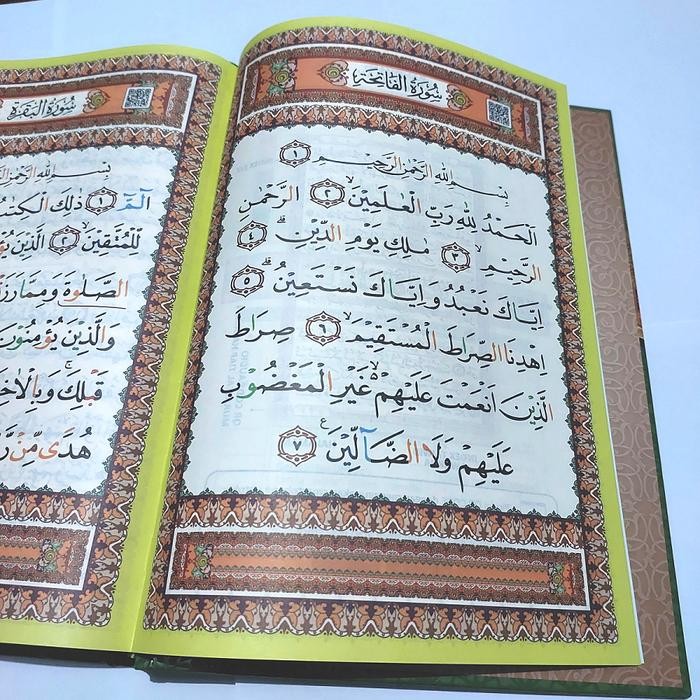 سُورَةُ الْفَاتِحَةِ
بِسْمِ اللّٰهِ الرَّحْمٰنِ الرَّحِيْمِ ۝١
اَلْحَمْدُ لِلّٰهِ رَبِّ الْعٰلَمِيْنَۙ ۝٢ الرَّحْمٰنِ
الرَّحِيْمِۙ ۝٣ مٰلِكِ يَوْمِ الدِّيْنِۗ ۝٤
اِيَّاكَ نَعْبُدُ وَاِيَّاكَ نَسْتَعِيْنُۗ ۝٥
اِهْدِنَا الصِّرَاطَ الْمُسْتَقِيْمَۙ ۝٦ صِرَاطَ
الَّذِيْنَ اَنْعَمْتَ عَلَيْهِمْ ەۙ غَيْرِ الْمَغْضُوْبِ
عَلَيْهِمْ وَلَا الضَّاۤلِّيْنَࣖ ۝٧
سُورَةُ الْبَقَرَةِ
بِسْمِ اللّٰهِ الرَّحْمٰنِ
الۤمّۤۚ ۝١ ذٰلِكَ الْكِتٰبُ
لِّلْمُتَّقِيْنَۙ ۝٢ الَّذِيْنَ
الصَّلٰوةَ وَمِمَّا
وَالَّذِيْنَ يُؤْمِنُوْنَ
قَبْلِكَۚ وَبِالْاٰخِ
هُدًى مِّنْ